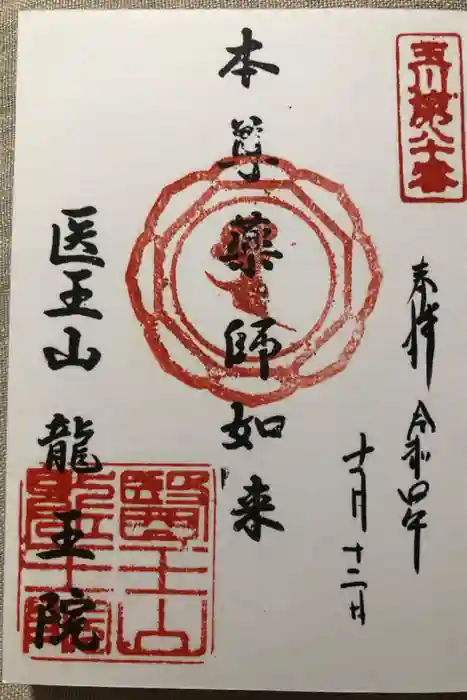 玉川第八十番
奉拝 令和四年
十一月十二日
本尊薬師如来
医王山 龍王院
醫王山
龍王院